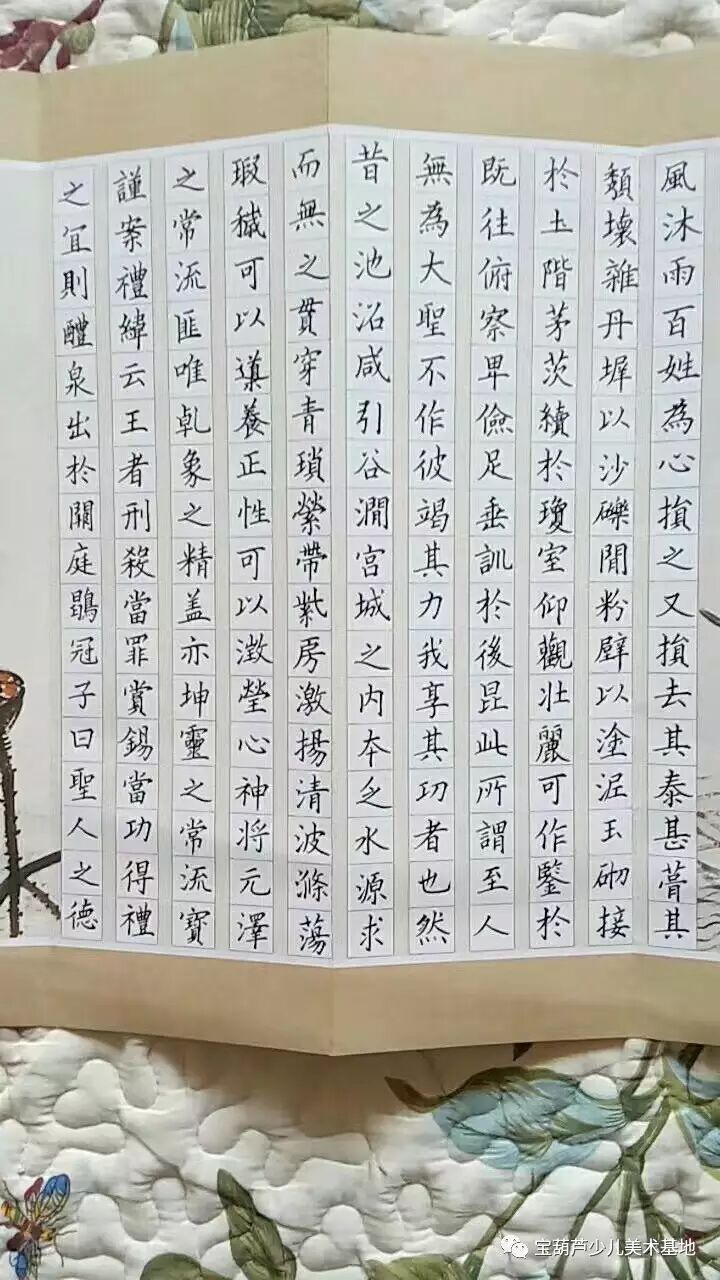 風沐雨百姓為心損之又損去其泰甚葺其
頹壞雜丹墀以沙礫間粉壁以塗泥玉砌接
於土階茅茨續於瓊室仰觀壯麗可作鑒於
既往俯察卑儉足垂訓於後昆此所謂至人
無為大聖不作彼竭其力我享其功者也然
昔之池沼咸引谷澗宮城之内本乏水源求
而無之貫穿青瑣縈帶紫房激揚清波滌蕩
瑕穢可以導養正性可以澂瑩心神将元澤
之常流匪唯乹象之精盖亦坤靈之常流寶
謹案禮緯云王者刑殺當罪賞錫當功得禮
之宜則醴泉出於闕庭鶡冠子曰聖人之德
宝葫芦少儿美术基地